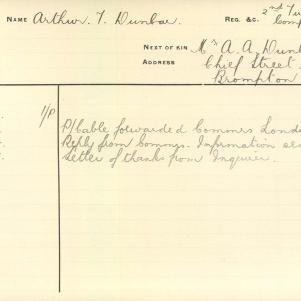 NAME Arthur. T. Dunbar.
REG. &C. 2nd Tu
Comp
NEXT OF KIN Mr A. A. Dunb
ADDRESS Chief Street
Brompton
1/P P/Cable forwarded Commrs Lond
Reply from Commrs. Information
Letter of thanks from Inquirer.